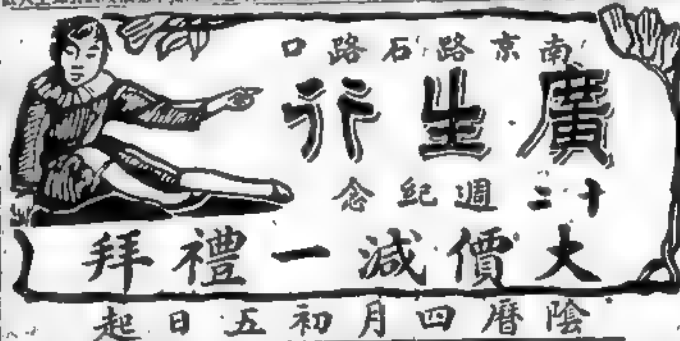 南京路石路口
廣生行
十二週紀念
大價減一禮拜
陰曆四月初五日起